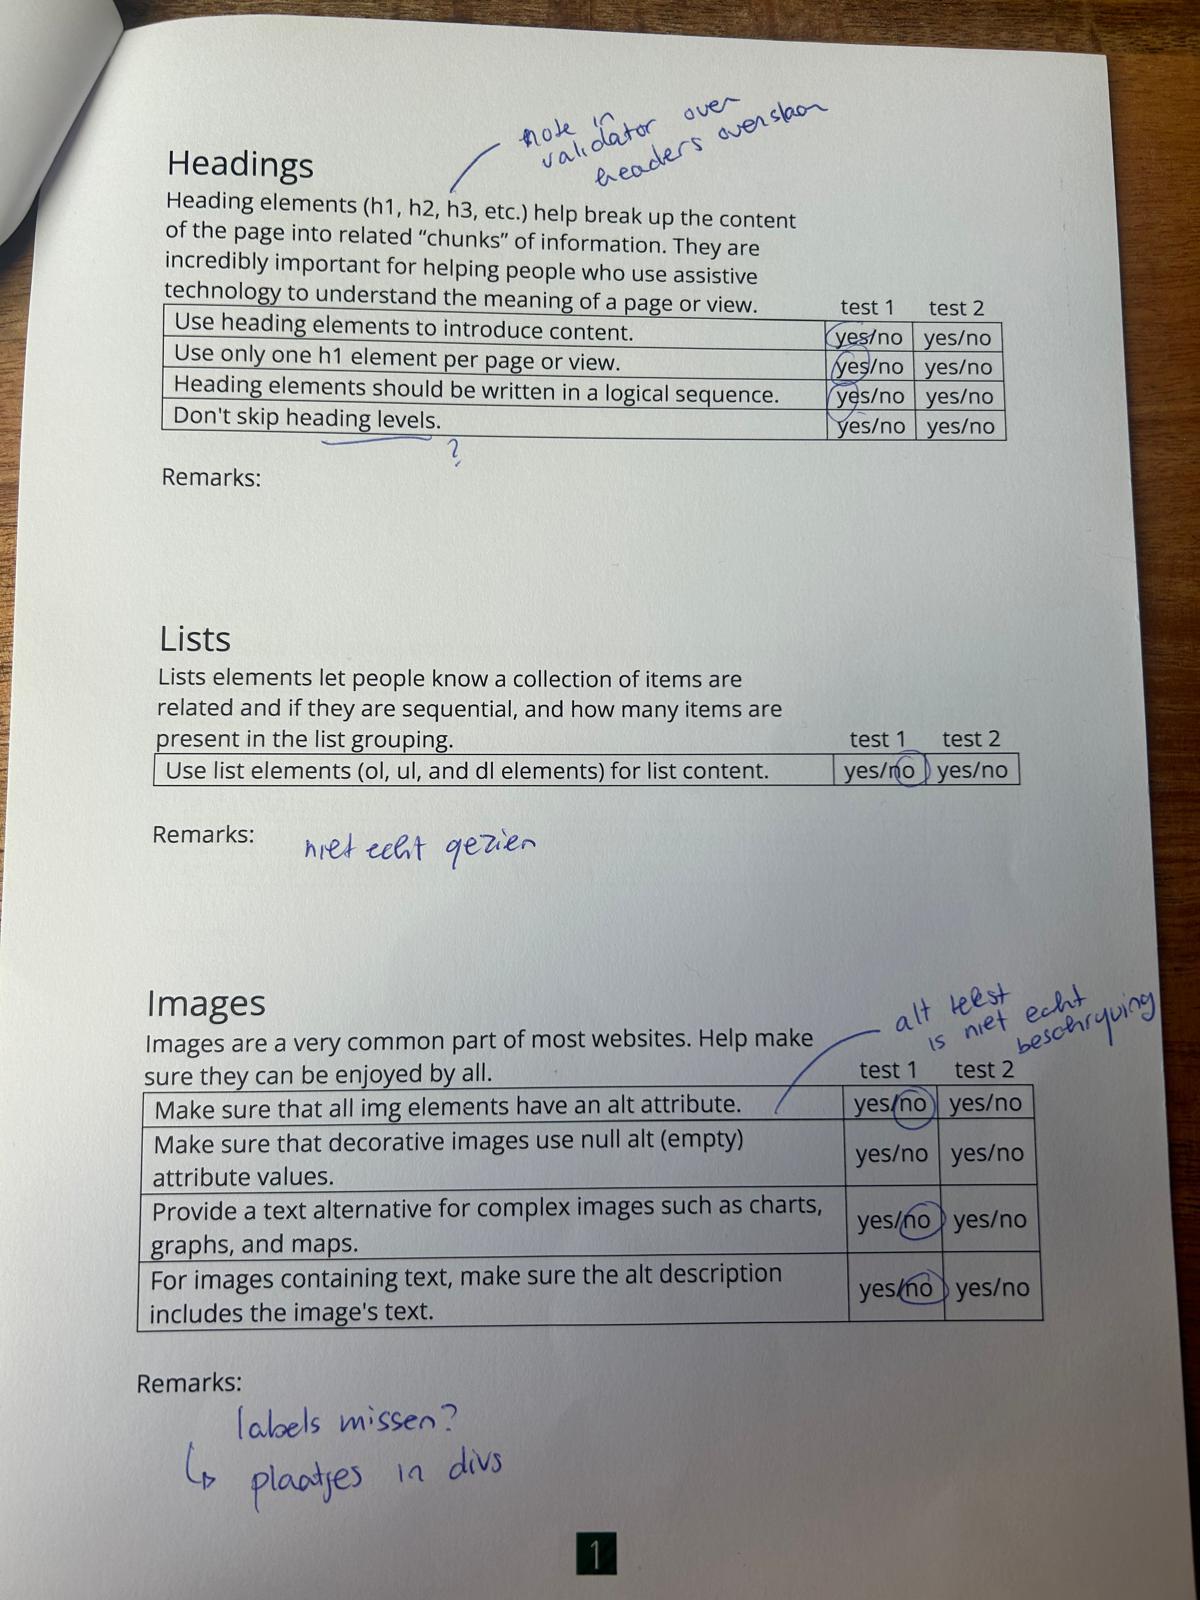 note in
validator over
headers overslaan
Headings
Heading elements (h1, h2, h3, etc.) help break up the content
of the page into related “chunks” of information. They are
incredibly important for helping people who use assistive
technology to understand the meaning of a page or view.
test 1 test 2
Use heading elements to introduce content. yes/no yes/no
Use only one h1 element per page or view. yes/no yes/no
Heading elements should be written in a logical sequence. yes/no yes/no
Don't skip heading levels. yes/no yes/no
?
Remarks:
Lists
Lists elements let people know a collection of items are
related and if they are sequential, and how many items are
present in the list grouping.
test 1 test 2
Use list elements (ol, ul, and dl elements) for list content. yes/no yes/no
Remarks: niet echt gezien
Images
alt tekst
is niet echt
beschryving
Images are a very common part of most websites. Help make
sure they can be enjoyed by all.
test 1 test 2
Make sure that all img elements have an alt attribute. yes/no yes/no
Make sure that decorative images use null alt (empty)
attribute values. yes/no yes/no
Provide a text alternative for complex images such as charts,
graphs, and maps. yes/no yes/no
For images containing text, make sure the alt description
includes the image's text. yes/no yes/no
Remarks:
labels missen?
↳ plaatjes in divs
1